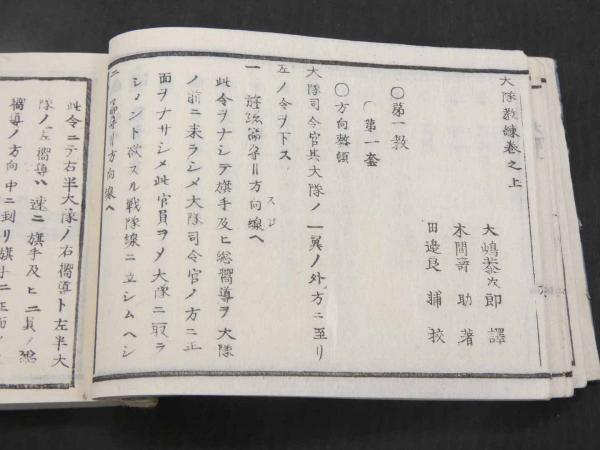 大隊教練巻之上
大嶋恭次郎 譯
本間壽助 著
田邉良輔 挍
○第一教
○第一套
○方向整頓
大隊司令官其大隊ノ一翼ノ外方ニ至リ
左ノ令ヲ下ス
一 旌旗嚮導〃方向線へ
スジ
此令ヲナシテ旗手及ヒ總嚮導ヲ大隊
ノ前ニ来ラシメ大隊司令官ノ方ニ正
面ヲナサシメ此官員ヲメ大隊ニ取ラ
シメント欲スル戦隊線ニ立シムヘシ
二 嚮導〃方向線へ
此令ニテ右半大隊ノ右嚮導ト左半大
隊ノ左嚮導ハ速ニ旗手及ヒ二員ノ總
嚮導ノ方向中ニ到リ旗手ニ正面